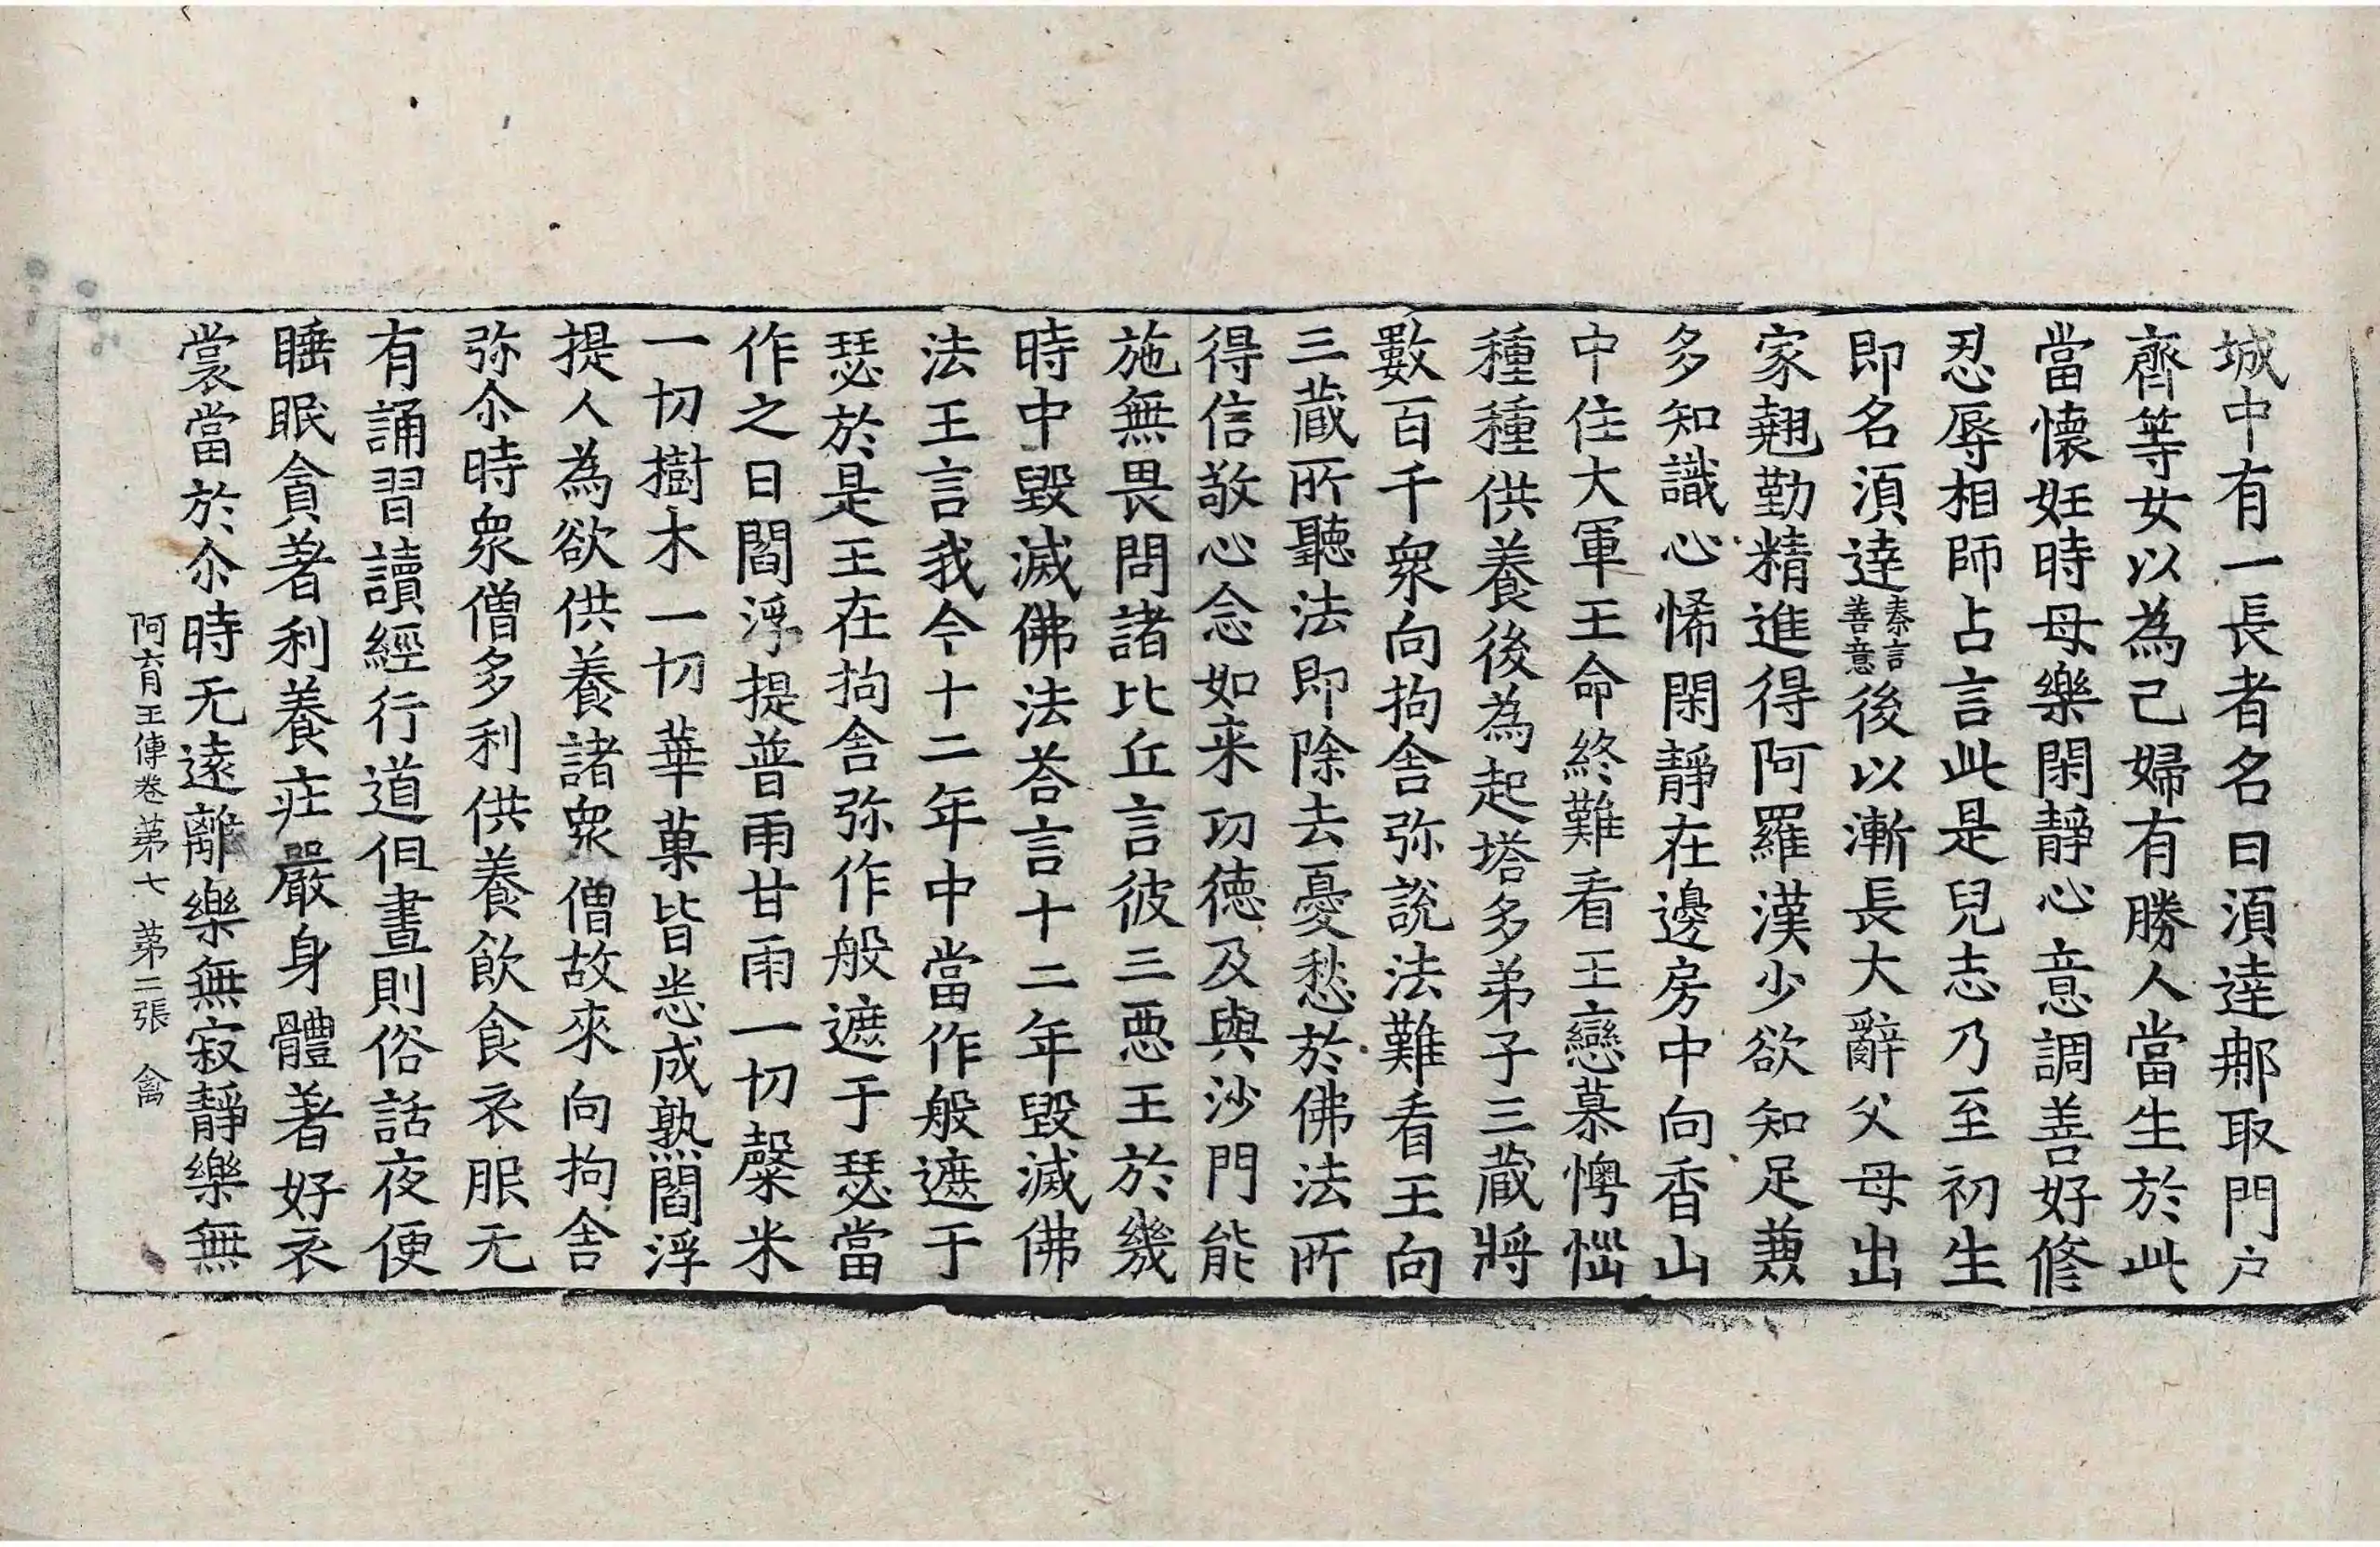 城中有一長者名曰湏達𨙻取門户
齊等女以為己婦有勝人當生於此
當懷妊時母樂閑靜心意調善好修
忍辱相師占言此是兒志乃至初生
即名湏達秦言善意後以漸長大辭父母出
家翹勤精進得阿羅漢少欲知足蕀
多知識心悕閑靜在邊房中向香山
中住大軍王命終難看王戀慕懊惱
種種供養後為起塔多弟子三蔵將
數百千衆向拘舍弥說法難看王向
三蔵所聽法即除去憂愁於佛法所
得信敬心念如来功徳及與沙門能
施無畏問諸比丘言彼三惡王於幾
時中毀滅佛法荅言十二年毀滅佛
法王言我今十二年中當作般遮于
瑟於是王在拘舍弥作般遮于瑟當
作之日閻浮提普雨甘雨一切糳米
一切樹木一切華菓皆悉成熟閻浮
提人為欲供養諸衆僧故來向拘舍
弥尒時衆僧多利供養飲食衣服无
有誦習讀經行道但晝則俗話夜便
睡眠貪著利養莊嚴身體著好衣
裳當於尒時无遠離樂無寂靜樂無
阿育王傳卷苐七 苐二張 禽